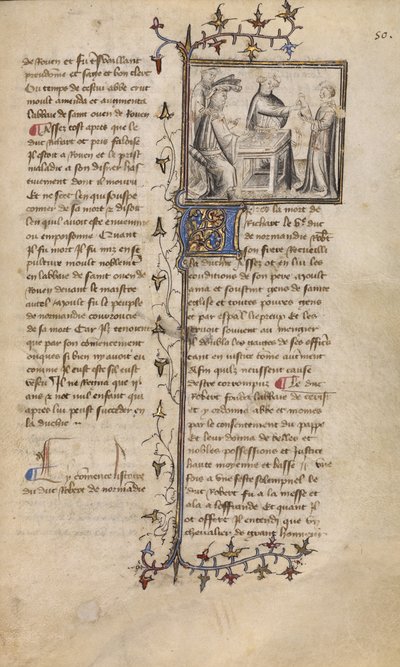 50.
de Rouen et fu tresvaillant
preudomme et saige et bon clerc
Ou temps de cestui abbe crut
moult amenda et augmenta
labbaie de saint ouen de Rouen
Assez tost apres que le
duc richart et pais
Il estoit a Rouen et le prist
maladie a son disner has
tivement dont il mourut
Et ne scet len qui souspe
conner de sa mort et disoit
len quil avoit este envenime
ou empoisonne Quant
Il fu mort Il fu mis en se
pulture moult noblement
en labbaie de saint ouen de
Rouen devant le maistre
autel Moult fu le peuple
de normandie courroucie
de sa mort Car ilz tenoient
que par son commencement
onques si bien ny avoit eu
comme Il eust este sil eust
vescu Il ne regna que ii
ans et not nul enfant qui
apres lui peust succeder en
la duchie
Cy commence listoire
du duc Robert de normandie
Apres la mort de
Richart le duc
de normandie Robt
son frere recueilli
la duchie Assez ot en lui les
condicions de son pere Moult
ama et soustint gens de sainte
eglise et toutes povres gens
par espal lepreux Et les
servoit souvent au mengier
Il doubla les gaiges de ses offici
ers en justice tenir aucunement
Afin quilz neussent cause
destre corrompuz Le duc
Robert fonda labbaie de
et y ordonna abbe et moines
par le consentement du pappe
Et leur donna de belles et
nobles possessions et justice
haute moyenne et basse une
fois a une feste solempnel le
duc Robert fu a la messe et
ala a loffrande Et quant il
ot offert Il entendi que un
chevalier de grant honneur